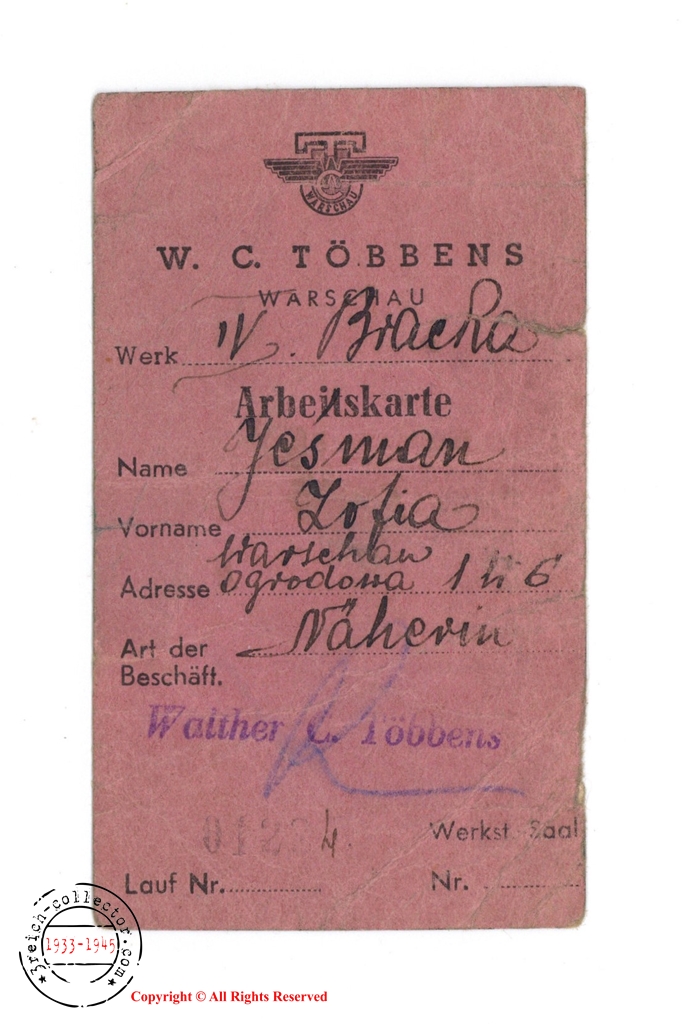 WARSCHAU
W. C. TÖBBENS
WARSCHAU
Werk IV. Bracka
Arbeitskarte
Name Jeśman
Vorname Zofia
Warschau
Adresse Ogrodowa 1 6
Art der Näherin
Beschäft.
Walther C. Többens
4.
Werkst. Saal
Lauf Nr. Nr.
3reich-collector.com
1933-1945
Copyright © All Rights Reserved